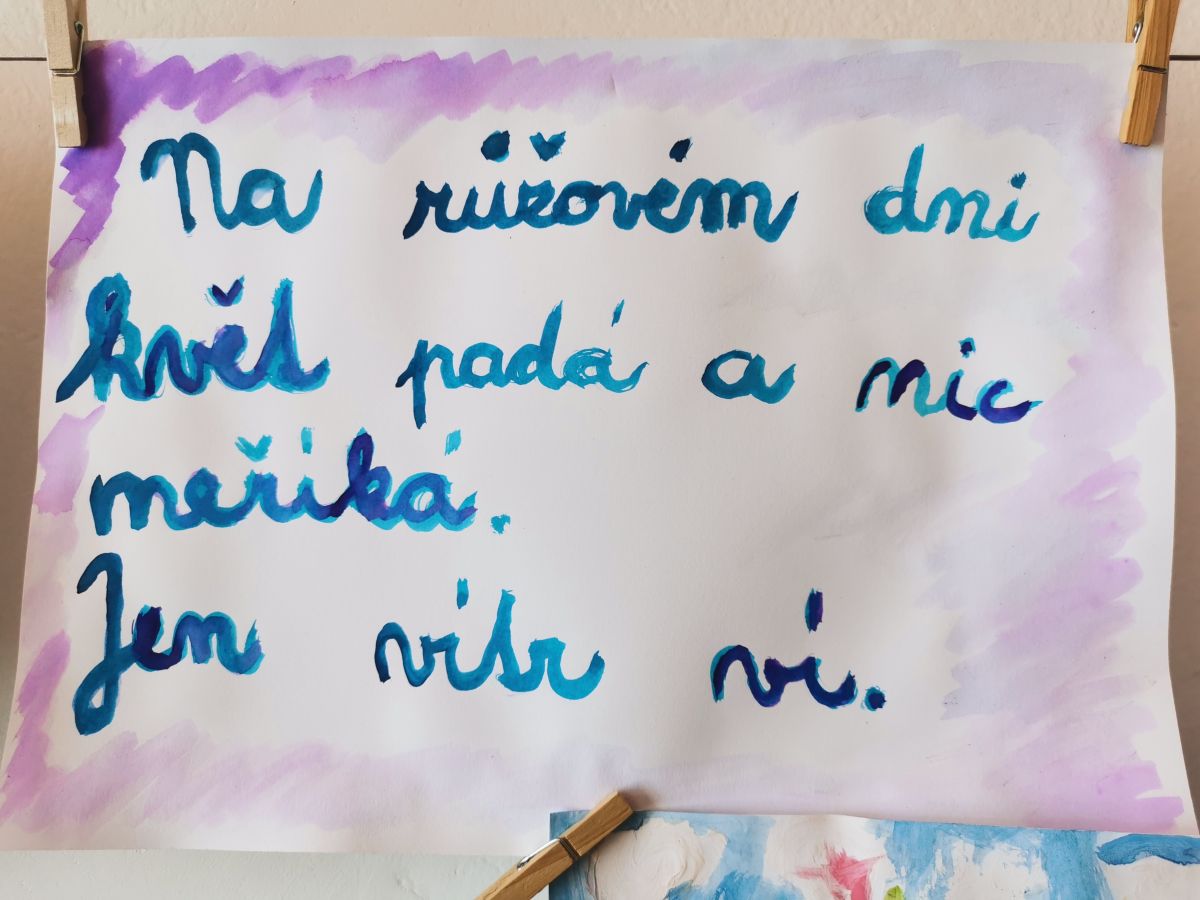 Na růžovém dni
květ padá a nic
meříká.
Jen vítr ví.